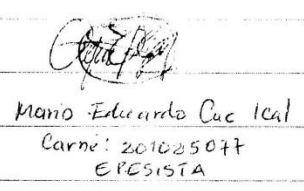 Mario Eduardo Cuc Ical
Carné: 201025077
EPESISTA